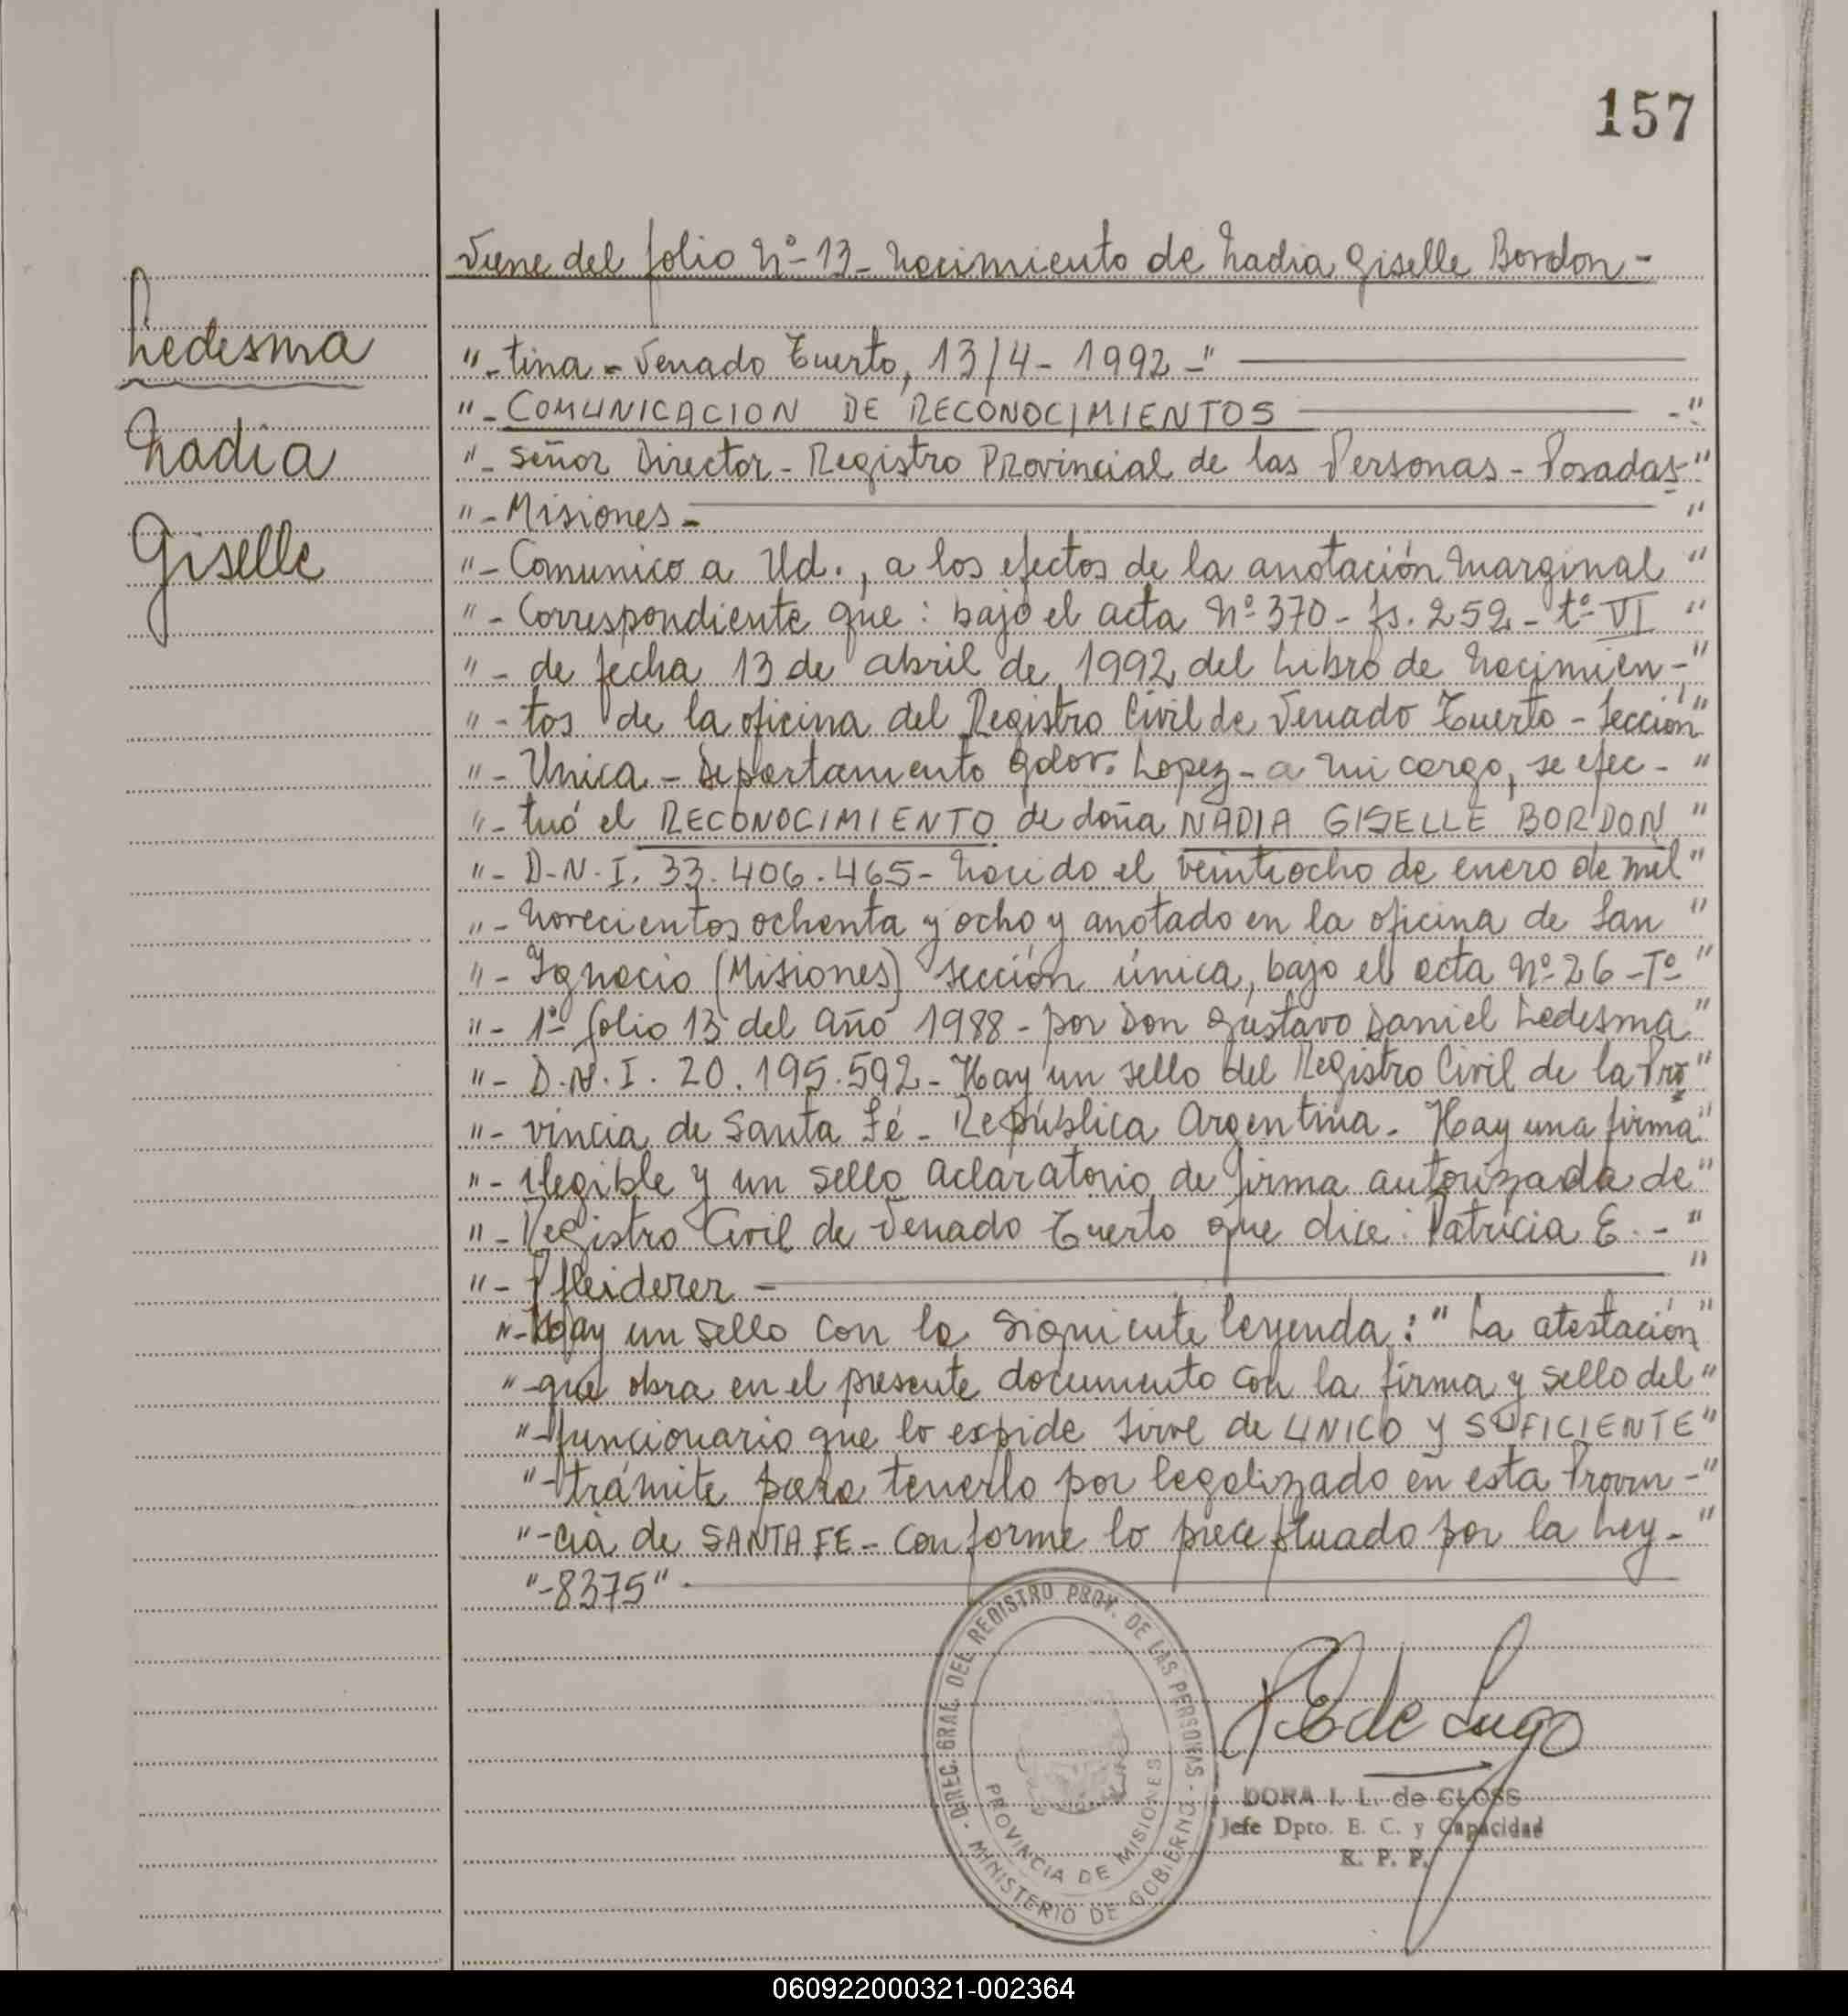 157
Viene del folio Nº 13 - Nacimiento de Nadia Giselle Bordon -
Ledesma
Nadia
Giselle
"- tina - Venado Tuerto, 13/4 - 1992 -"
"- COMUNICACION DE RECONOCIMIENTOS -"
"- Señor Director - Registro Provincial de las Personas - Posadas -"
"- Misiones - "
"- Comunico a Ud., a los efectos de la anotación marginal "
"- Correspondiente que: bajo el acta Nº 370 - fs. 259 - tº VI "
"- de fecha 13 de abril de 1992 del Libro de Nacimien -"
"- tos de la oficina del Registro Civil de Venado Tuerto - Sección "
"- Unica - Departamento Gdor. Lopez - a mi cargo, se efec - "
"- tuó el RECONOCIMIENTO de doña NADIA GISELLE BORDON "
"- D.N.I. 33.406.465 - nacido el veintiocho de enero de mil "
"- novecientos ochenta y ocho y anotado en la oficina de San "
"- Ignacio (Misiones) sección única, bajo el acta Nº 26 - Tº "
"- 1º folio 13 del año 1988 - por Don Gustavo Daniel Ledesma "
"- D.N.I. 20.195.592 - Hay un sello del Registro Civil de la Pro "
"- vincia de Santa Fé - República Argentina - Hay una firma "
"- ilegible y un sello aclaratorio de firma autorizada de "
"- Registro Civil de Venado Tuerto que dice: Patricia E. - "
"- Pfleiderer - "
"- Hay un sello con la siguiente leyenda: " La atestación "
"- que obra en el presente documento con la firma y sello del "
"- funcionario que lo expide sirve de UNICO y SUFICIENTE "
"- trámite para tenerlo por legalizado en esta Provin -"
"- cia de SANTA FE - conforme lo preceptuado por la Ley - "
"- 8375" -
DIREC. GRAL. DEL REGISTRO PROV. DE LAS PERSONAS - MINISTERIO DE GOBIERNO -
PROVINCIA DE MISIONES
de Lugo
DORA I. L. de CLOSS
Jefe Dpto. E. C. y Capacidad
R. P. P.
060922000321-002364